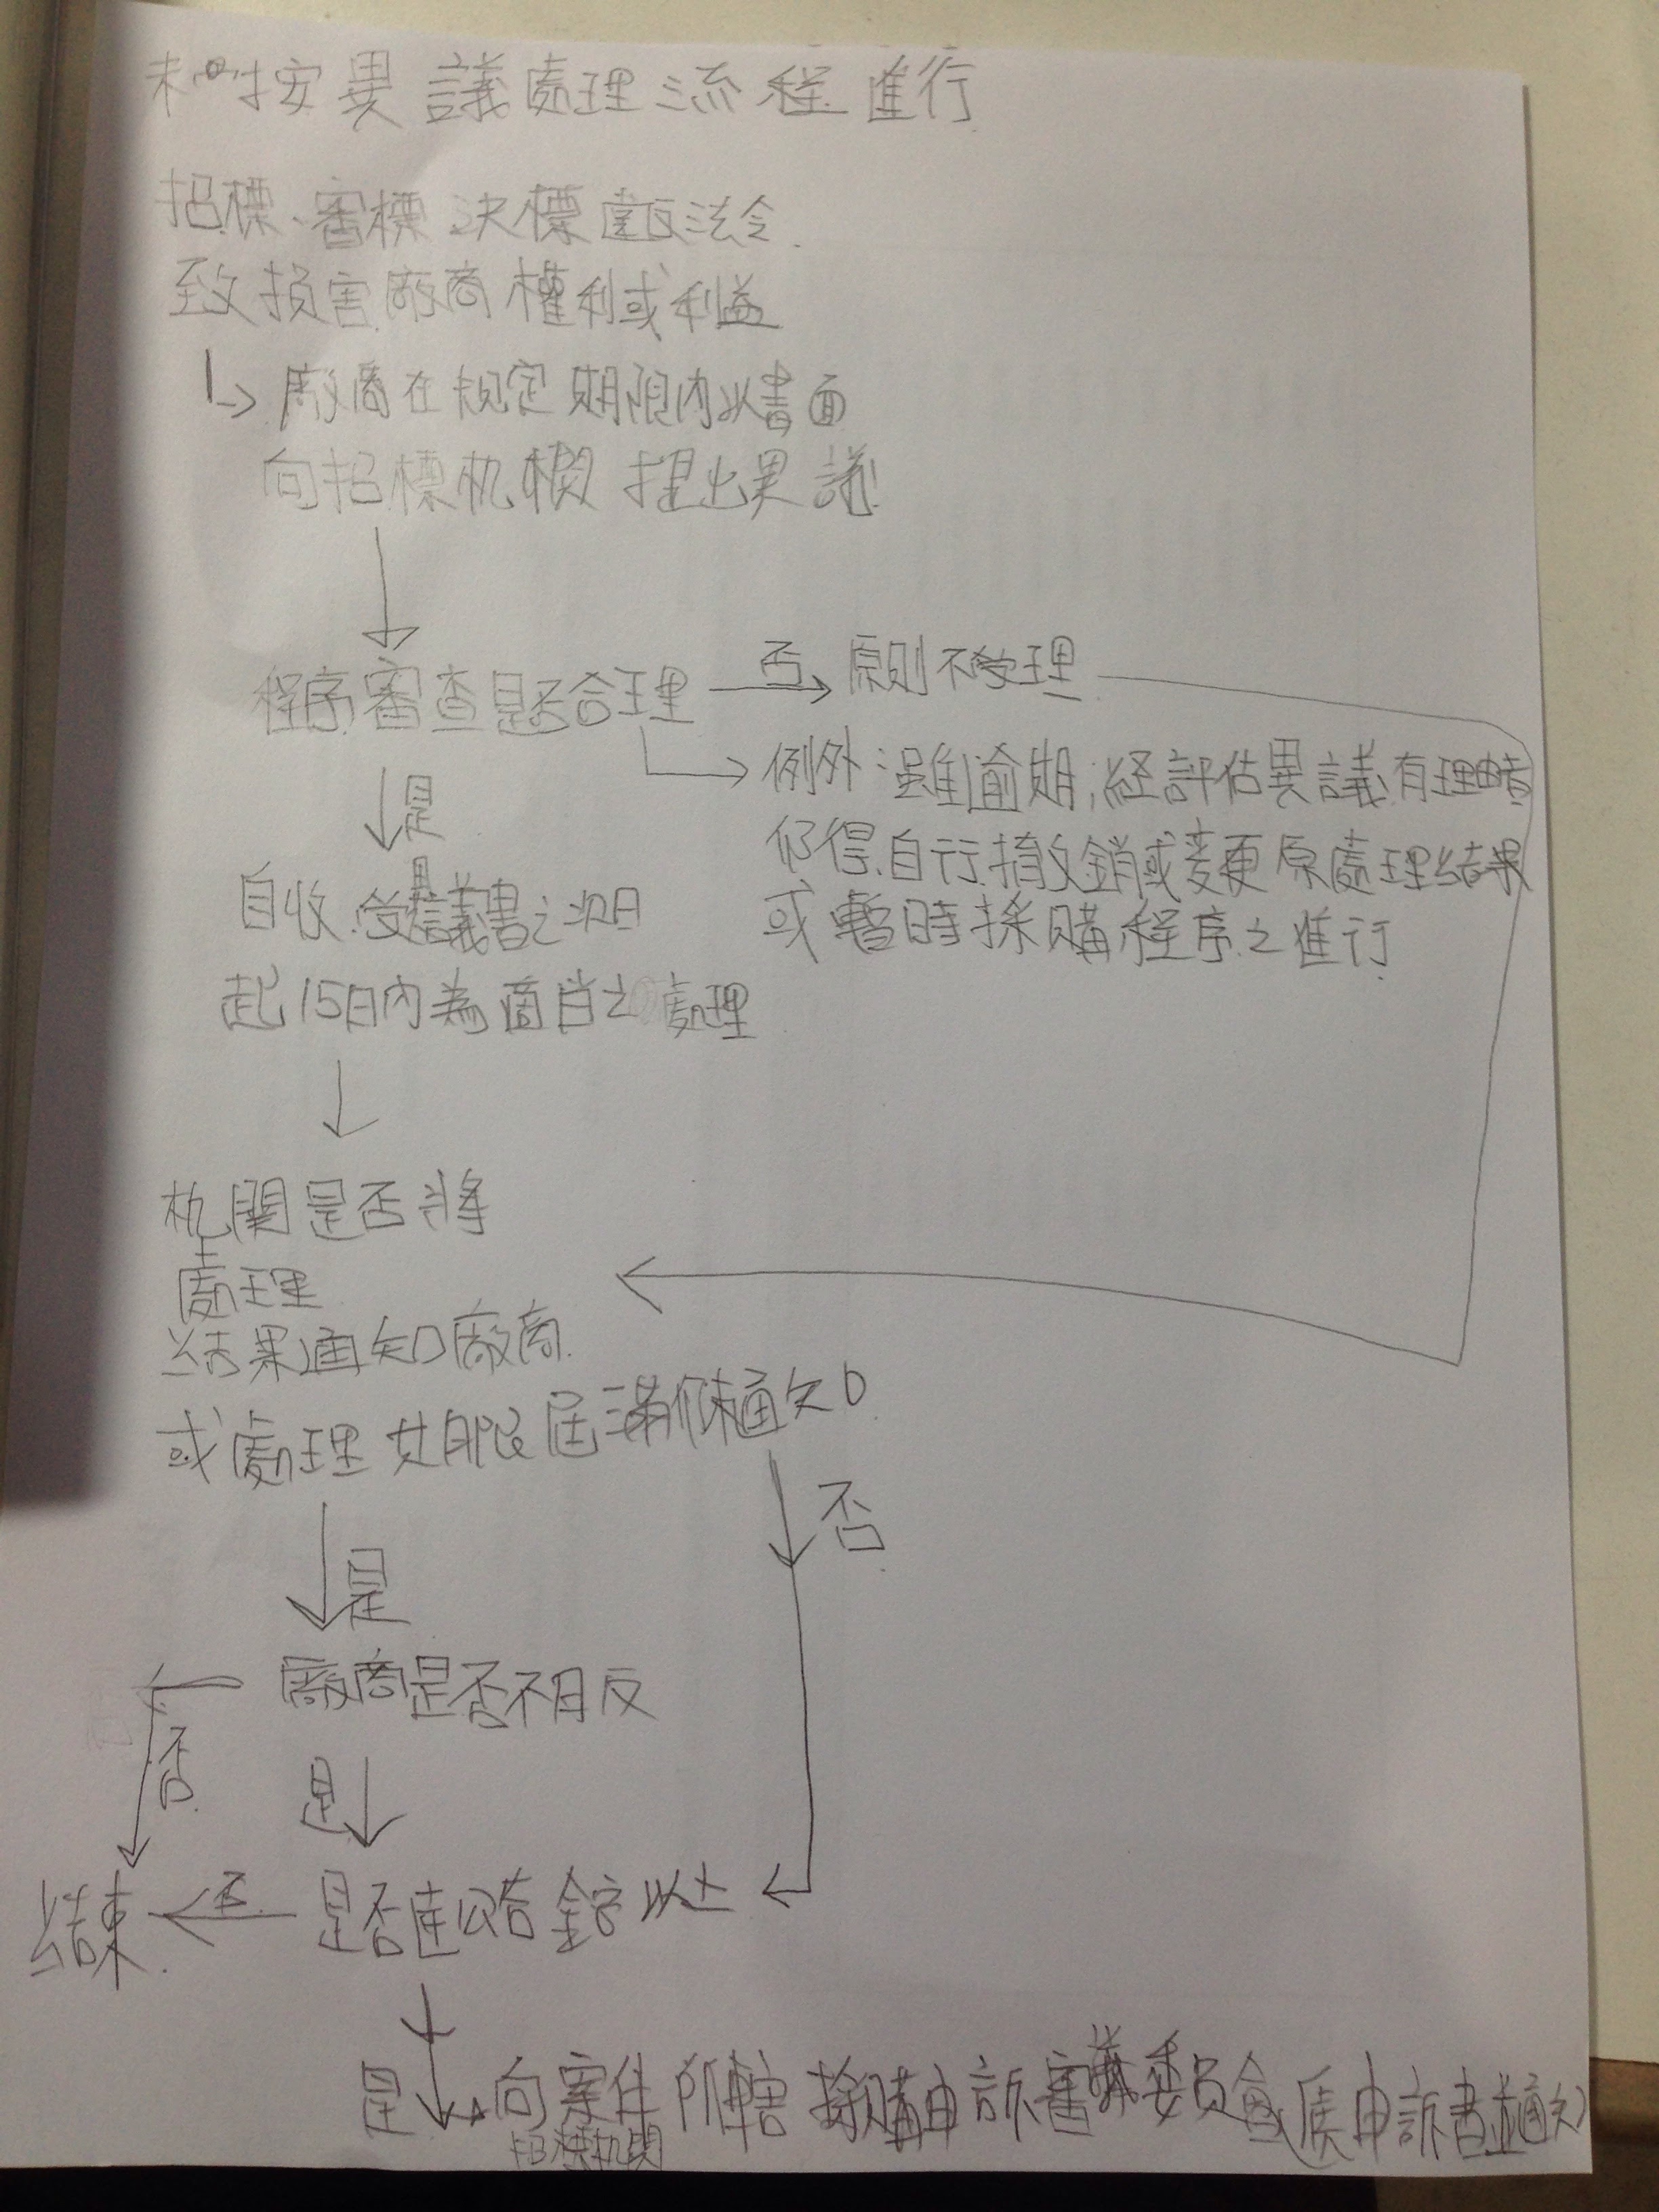 未按異議處理流程進行
招標、審標 決標 違反法令
致損害廠商權利或利益
廠商在規定期限內以書面
向招標机関提出異議
程序審查是否合理
否
原則不受理
例外 雖逾期,經評估異議有理由者
仍得自行撤銷或変更原處理結果
或暫時採購程序之進行
是
自收受異議書之次日
起15日內為適当之處理
机関是否將
處理
結果通知廠商
或處理期限屆滿仍未通知
否
是
廠商是否不服
否
是
是否達公告金額以上
否
結束
是
向案件所轄採購申訴審議委員會遞申訴書並通知
招標机関